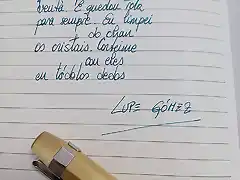 venta. E quedou rota
para sempre. Eu limpei
o do chan
os cristais. Corteime
con eles
en tódolos dedos
LUPE GÓMEZ